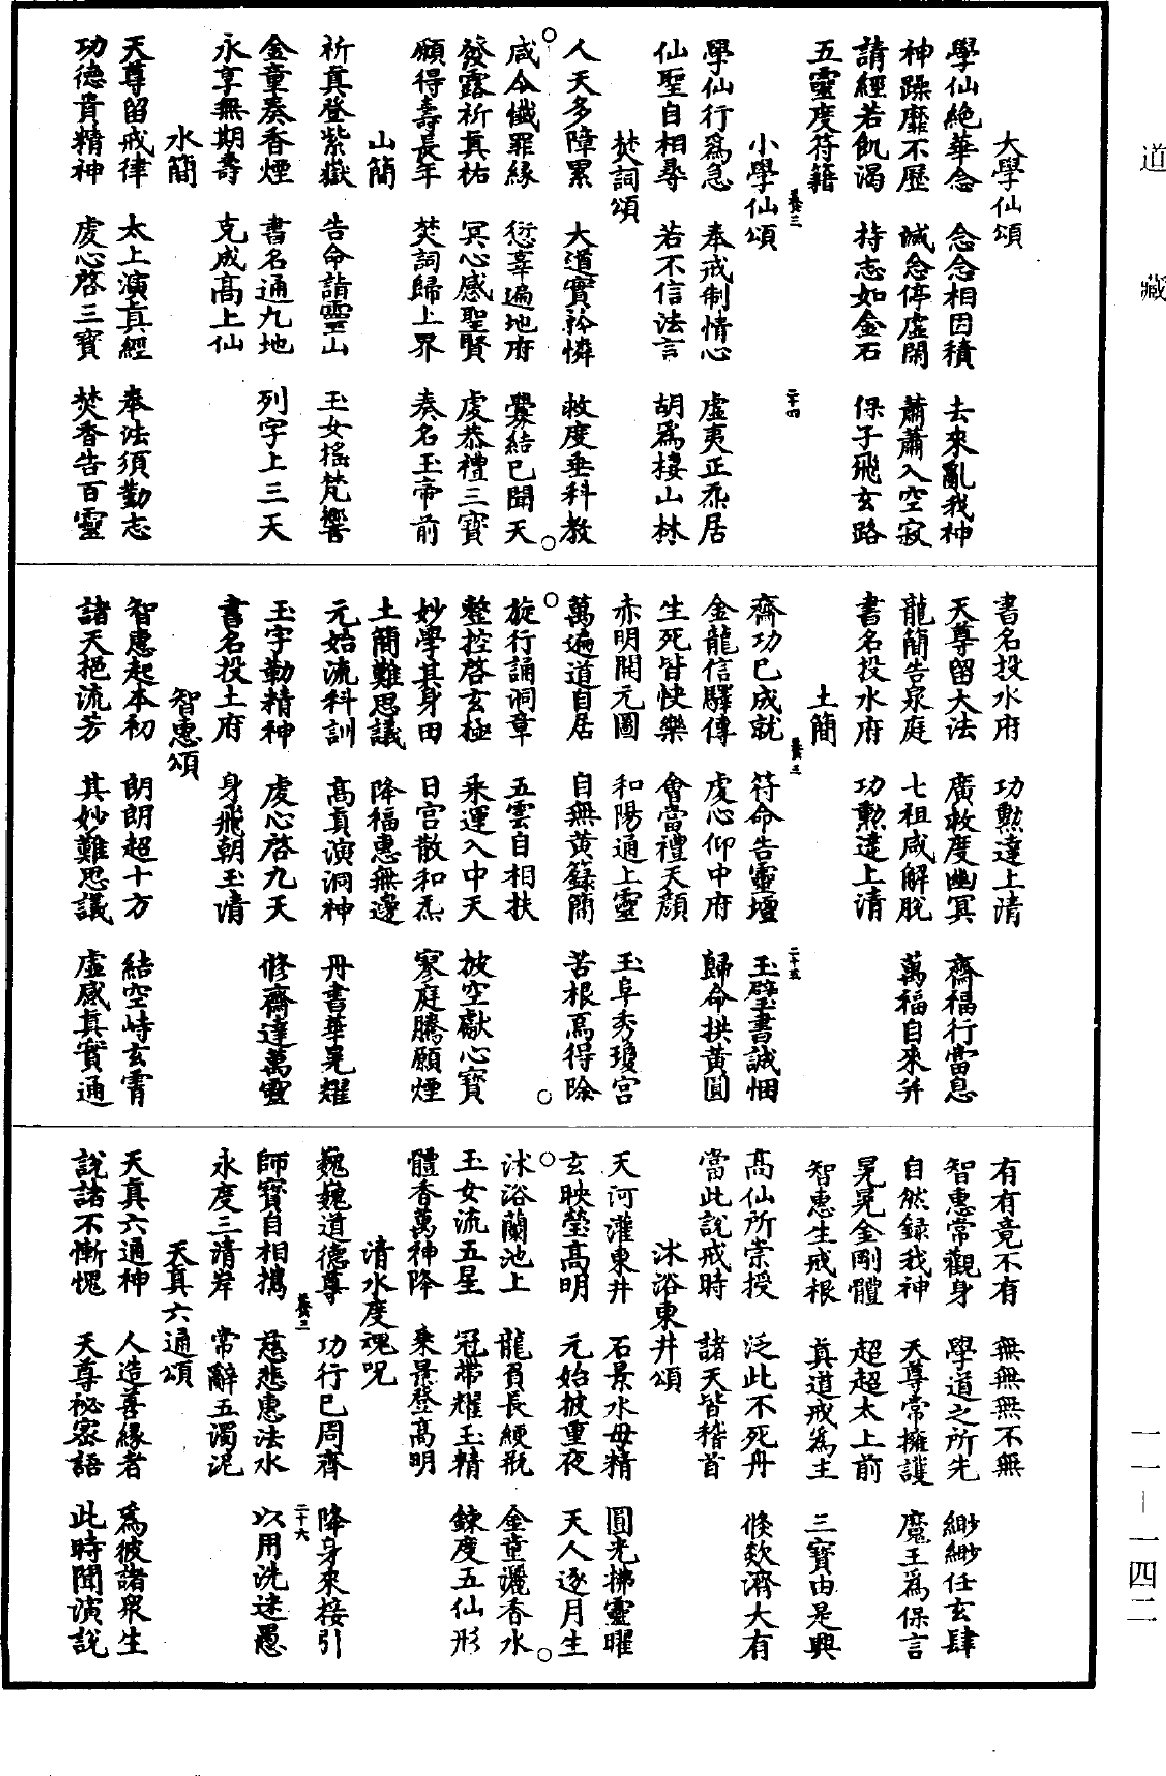 道藏
大學仙頌
學仙絕華念　念念相因積　去來亂我神
神躁靡不歷　滅念停虛閑　蕭蕭入空寂
請經若飢渴　持志如金石　保子飛玄路
五靈度符籍
養三　二十四
小學仙頌
學仙行爲急　奉戒制情心　虛夷正炁居
仙聖自相尋　若不信法言　胡爲棲山林
焚詞頌
人天多障累　大道實矜憐　救度垂科教
咸令懺罪緣　愆辜遍地府　釁結已聞天
發露祈真祐　冥心感聖賢　虔恭禮三寶
願得壽長年　焚詞歸上界　奏名玉帝前
山簡
祈真登紫嶽　告命詣靈山　玉女搖梵響
金童奏香煙　書名通九地　列字上三天
永享無期壽　克成高上仙
水簡
天尊留戒律　太上演真經　奉法須勤志
功德貴精神　虔心啓三寶　焚香告百靈
書名投水府　功勲達上清
天尊留大法　廣救度幽冥　齋福行當息
龍簡告泉庭　七祖咸解脫　萬福自來并
書名投水府　功勲達上清
土簡
養三　二十五
齋功已成就　符命告靈壇　玉璧書誠悃
金龍信驛傳　虔心仰中府　歸命拱黃圓
生死皆快樂　會當禮天顔
赤明開元圖　和陽通上靈　玉阜秀瓊宮
萬遍道自居　自無黃籙簡　苦根焉得除
旋行誦洞章　五雲自相扶
整控啓玄極　乘運入中天　披空獻心寶
妙學其身田　日宮散和炁　寥庭騰願煙
土簡難思議　降福惠無邊
元始流科訓　高真演洞神　丹書華晃耀
玉字勤精神　虔心啓九天　修齋達萬靈
書名投土府　身飛朝玉清
智惠頌
智惠起本初　朗朗超十方　結空峙玄霄
諸天挹流芳　其妙難思議　虛感真實通
有有竟不有　無無無不無
智惠常觀身　學道之所先　緲緲任玄肆
自然録我神　天尊常擁護　魔王爲保言
晃晃金剛體　超超太上前
智惠生戒根　真道戒爲主　三寶由是興
高仙所崇授　泛此不死舟　倏欻濟大有
當此說戒時　諸天皆稽首
沐浴東井頌
天河灌東井　石景水母精　圓光拂靈曜
玄映瑩高明　元始披重夜　天人逐月生
沐浴蘭池上　龍負長綆瓶　金童灑香水
玉女流五星　冠帶耀玉精　鍊度五仙形
體香萬神降　乘景登高明
清水度魂呪
巍巍道德尊　功行已周齊　降身來接引
養三　二十六
師寶自相擕　慈悲惠法水　以用洗迷愚
永度三清岸　常辭五濁泥
天真六通頌
天真六通神　人造善緣者　爲彼諸眾生
說諸不慚愧　天尊祕密語　此時聞演說
一一—一四二